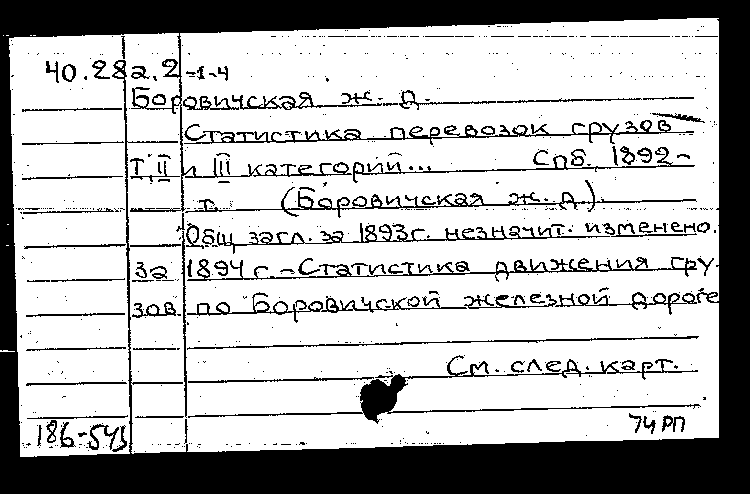 40.28а.2=1-4
Боровичская ж. д.
Статистика перевозок грузов
I, II и III категорий... Спб. 1892-
т. (Боровичская ж. д.).
Общ. загл. за 1893г. незначит. изменено.
За 1894 г. - Статистика движения гру-
зов по Боровичской железной дороге
См. след. карт.
74 РП